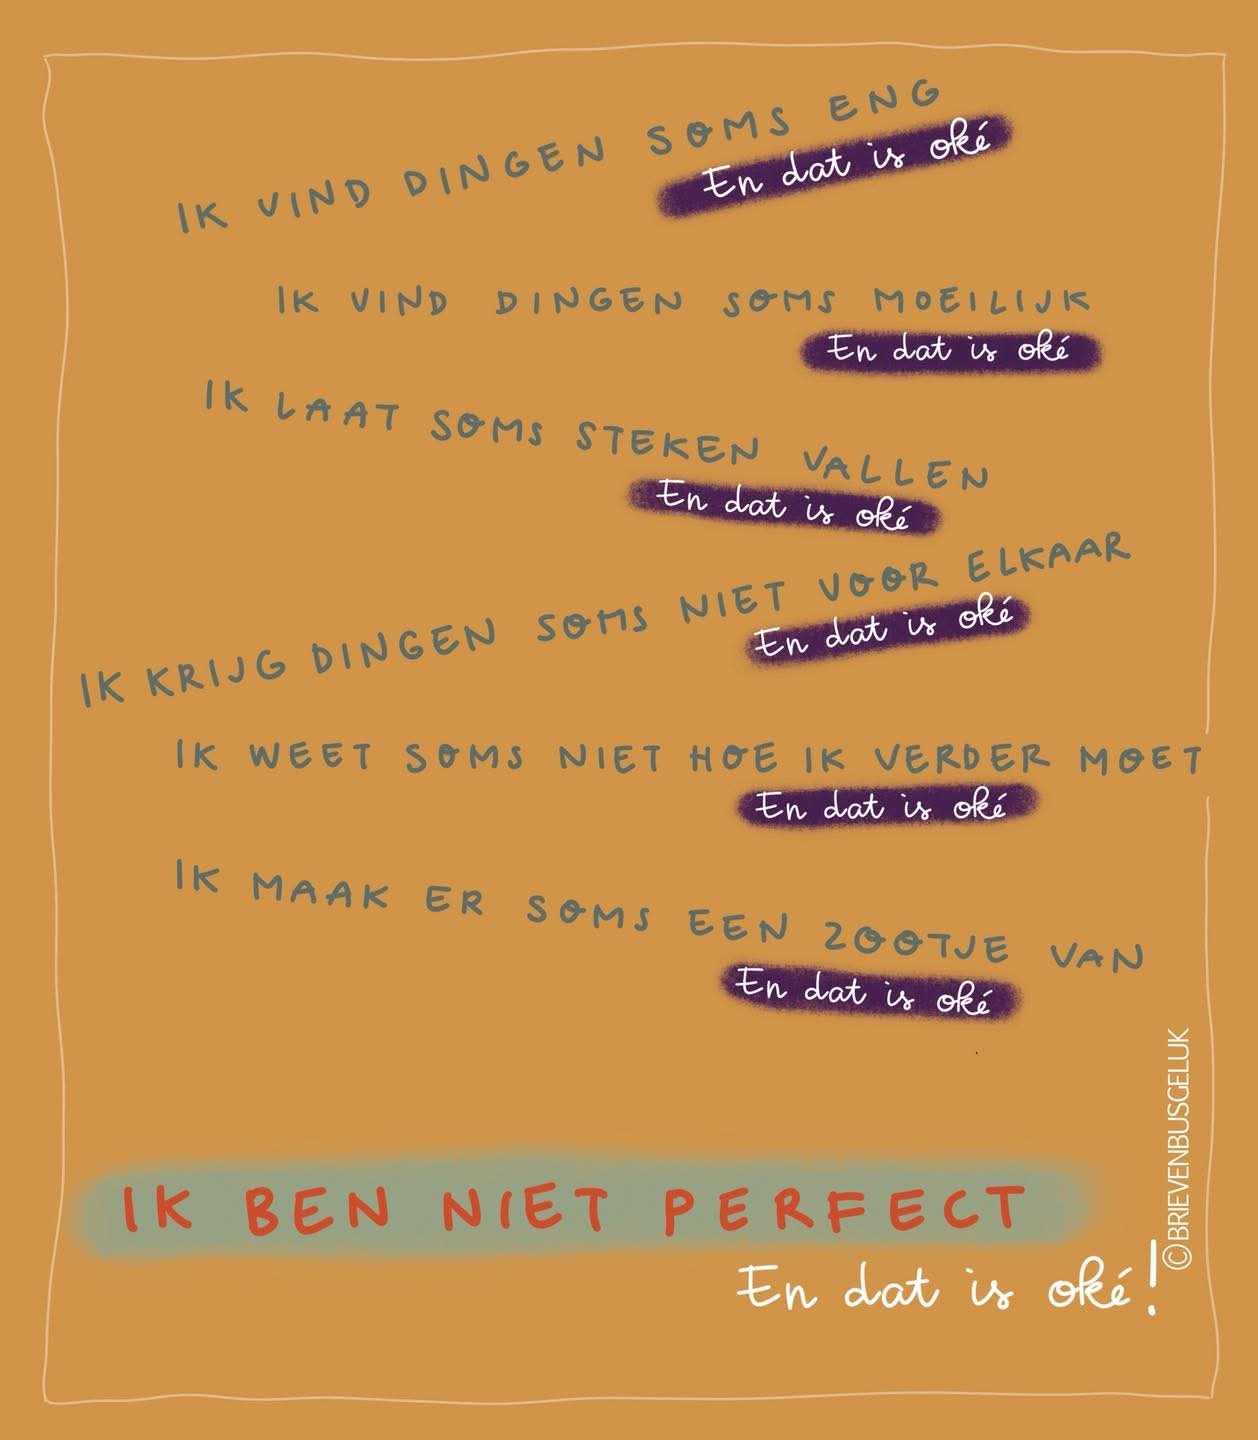 IK VIND DINGEN SOMS ENG
En dat is oké
IK VIND DINGEN SOMS MOEILIJK
En dat is oké
IK LAAT SOMS STEKEN VALLEN
En dat is oké
IK KRIJG DINGEN SOMS NIET VOOR ELKAAR
En dat is oké
IK WEET SOMS NIET HOE IK VERDER MOET
En dat is oké
IK MAAK ER SOMS EEN ZOOTJE VAN
En dat is oké
IK BEN NIET PERFECT
En dat is oké!
©BRIEVENBUSGELUK